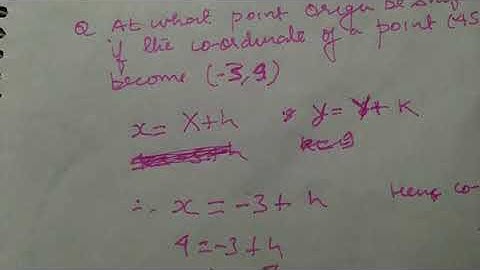 Q At what point origin be
if the co-ordinate of a point (45
become (-3,9)
x = X+h & y = Y+ K
k=9
∴ x = -3 + h Henc co-
4 = -3 + h